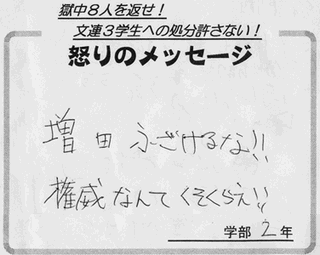 獄中8人を返せ!
文連3学生への処分許さない!
怒りのメッセージ
増田 ふざけるな!!
権威なんてくそくらえ!!
学部 2年